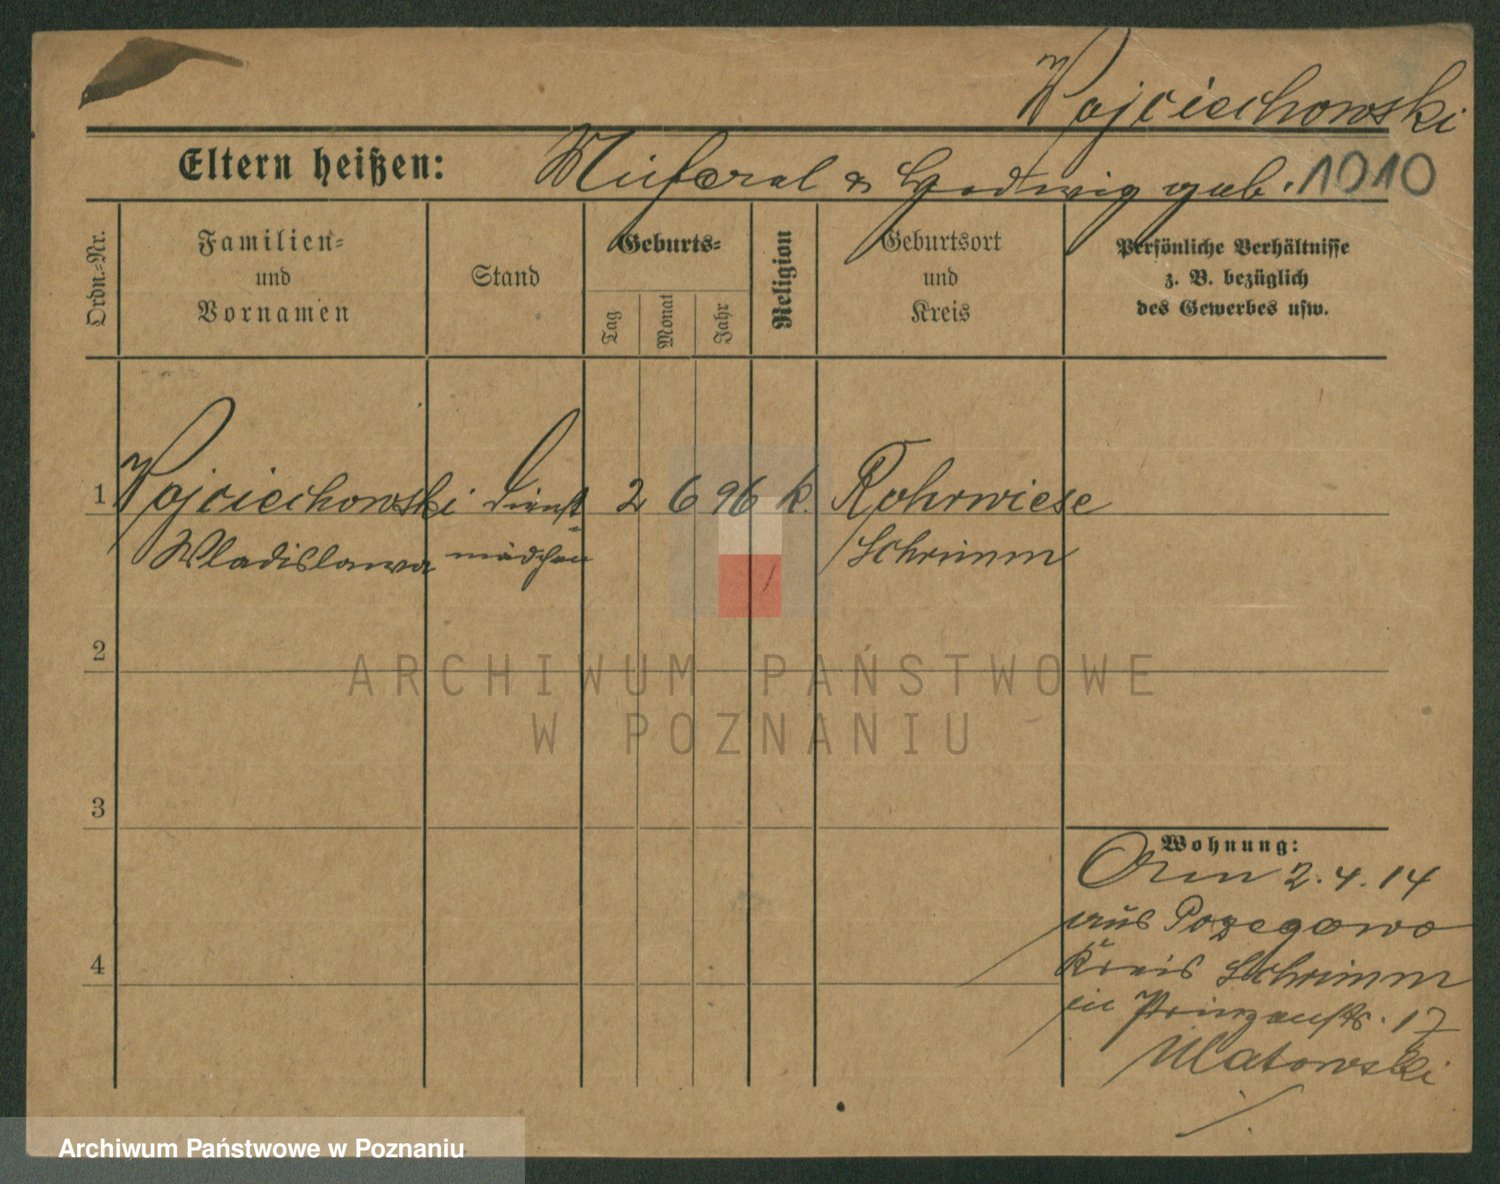 Wojciechowski
Eltern heißen: Michael & Hedwig geb. 1010
Ordn.-Nr.
Familien-
und
Vornamen
Stand
Geburts-
Tag
Monat
Jahr
Religion
Geburtsort
und
Kreis
Persönliche Verhältnisse
z. B. bezüglich
des Gewerbes usw.
1 Wojciechowski Dienst 2 6 96 k. Rohrwiese
Wladislawa mädchen Schrimm
2
ARCHIWUM PAŃSTWOWE
W POZNANIU
3
Wohnung:
2.4.14
aus Pozegowo
4
Kreis Schrimm
in Prinzenstr. 17
Archiwum Państwowe w Poznaniu